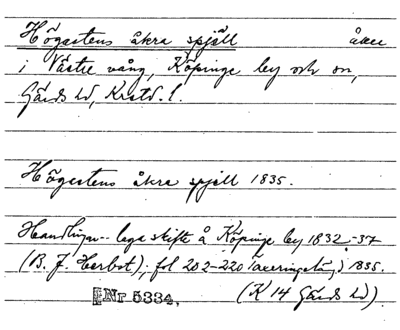 Högastens åkra spjäll åker
i Västre vång, Köpinge by och sn,
Gärds hd, Krstd. l.
Högastens åkra spjäll 1835.
Handlingar laga skifte å Köpinge by 1832-37
(B. J. Herbst); fol 202-220 Taxeringslängd 1835.
Nr 5334. (K 14 Gärds hd).